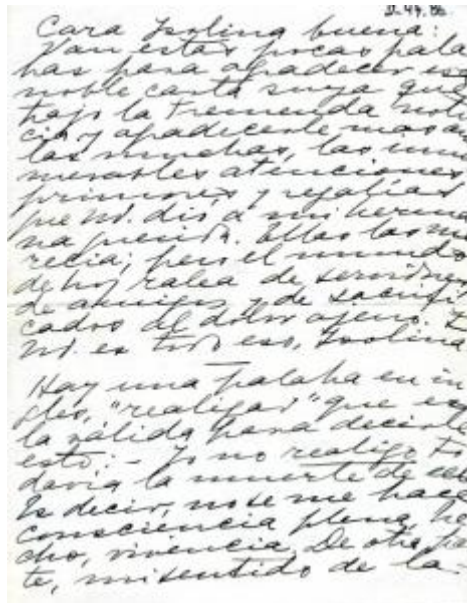 Cara Isolina buena:
Van estas pocas pala
bras para agradecer esa
noble carta suya que
trajo la tremenda noti
cia y agradecerle mas aun
las muchas, las innu
merables atenciones
primores y regalías
que Ud. dió á mi herma
na querida. Ella las me
recia; pero el mundo
de hoy ralea de servidores
de amigos y de sacrifi
cados al dolor ajeno. Y
Ud. es todo eso, Isolina
Hay una palabra en in
gles, "realizar" que es
la válida para decirle
esto: - Yo no realizo to
davia la muerte de
Es decir, no se me hace
consciencia plena, he
cho, vivencia. De otra par
te, mi sentido de la-